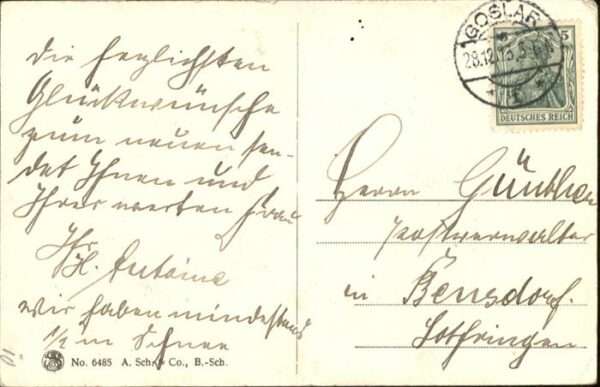 Die herzlichsten
Glückwünsche
zum neuen sen-
det Ihnen und
Ihrer werten Frau
Ihr
H. Antoine
Wir haben mindestens
1/2 m Schnee
No. 6485 A. Sch. & Co., B.-Sch.
GOSLAR
28.12.13.5-6N
DEUTSCHES REICH
5
Herrn Günther
Postverwalter
in Bensdorf.
Lothringen